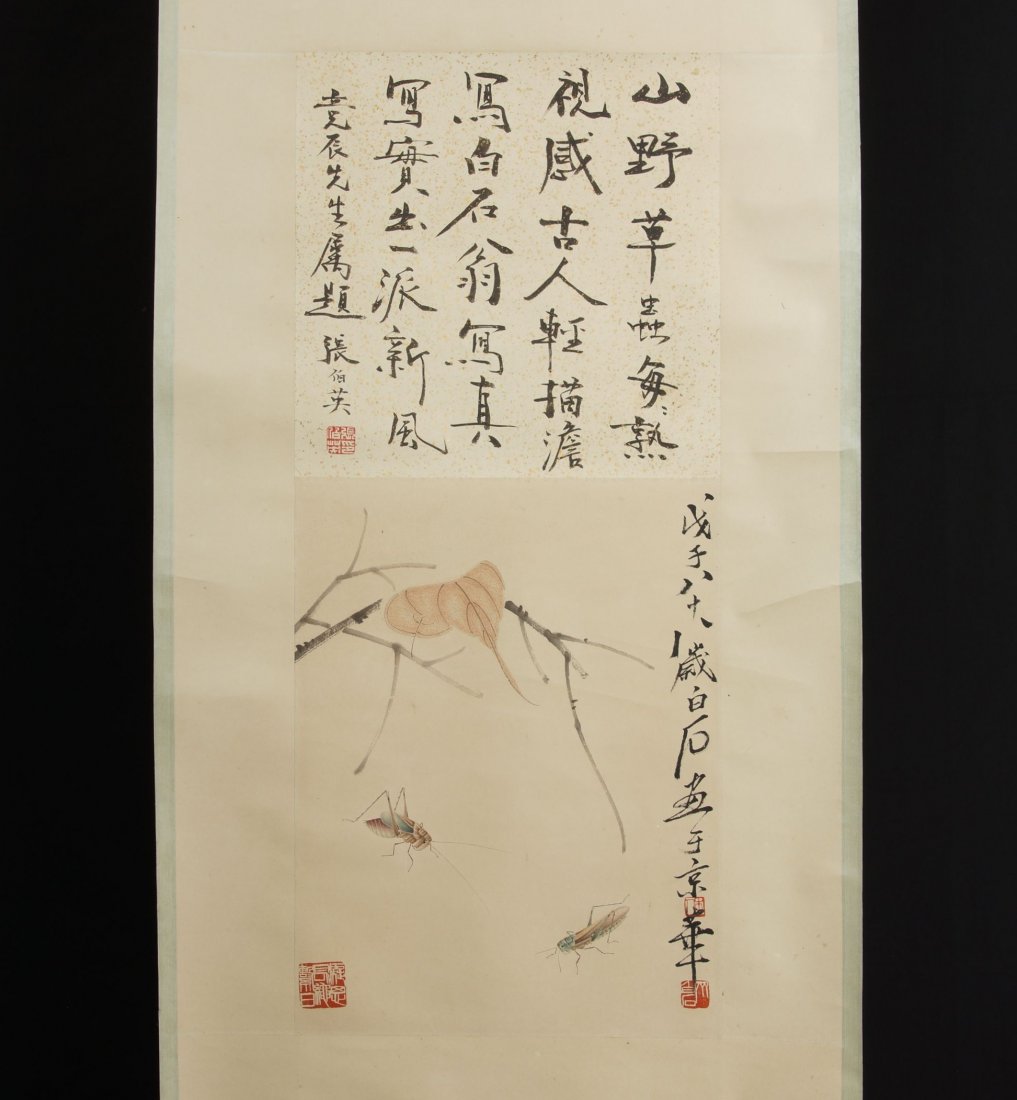 山野草蟲每々熟
視感古人輕描澹
寫白石翁寫真
寫實出一派新風
辰先生屬題 張伯英
戊子八十八歲白石畫于京華